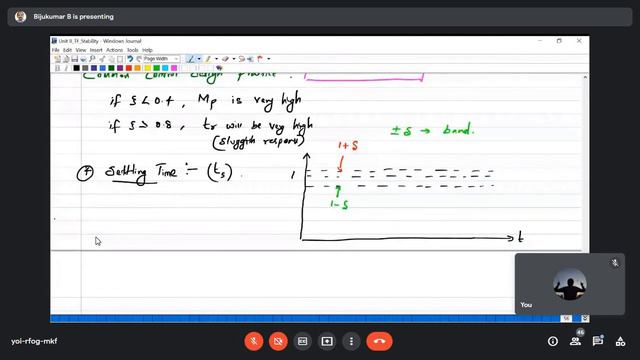 Bijukumar B is presenting
Unit II_TF_Stability - Windows Journal
File Edit View Insert Actions Tools Help
Common Control Design practice :
if ς < 0.4 , Mp is very high
if ς > 0.8 , tr will be very high
(sluggish respons)
± δ → band.
④ Settling Time :- (ts) .
1 + δ
1
1 - δ
t
You
56
yoi-rfog-mkf
46